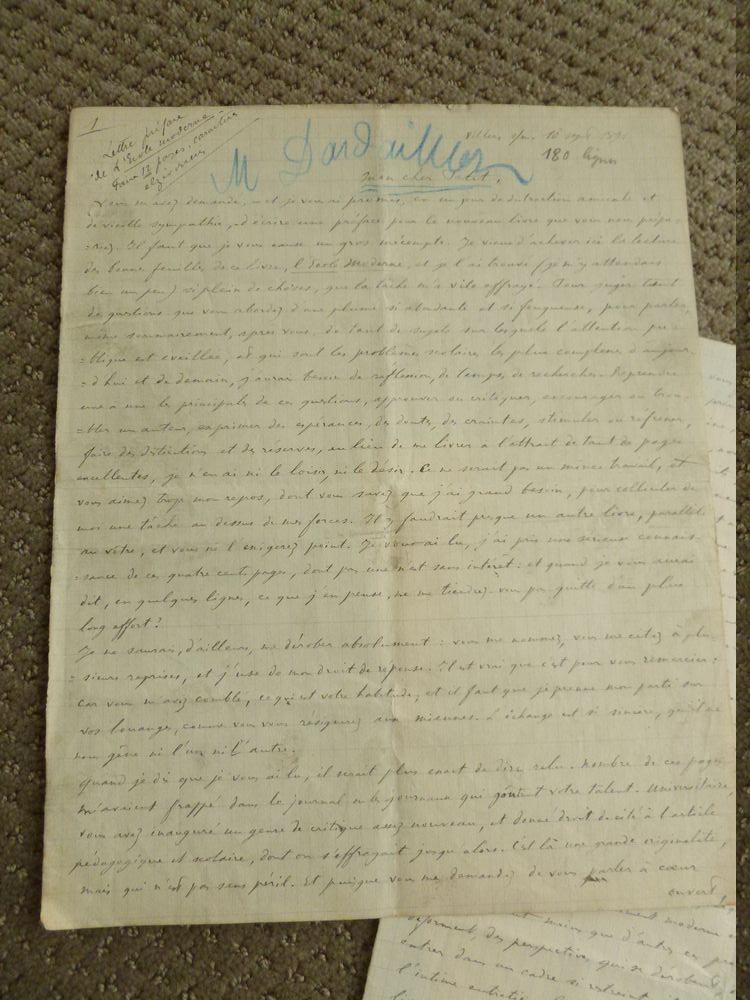 1
Lettre préface
de L'Ecole moderne
dans 12 pages. caractères
elzéviriens
M Dardaillon
10 sept.
180 lignes
Mon cher
Vous m'avez demandé, et je vous ai promis, en un jour de distraction amicale et
de vieille sympathie, d'écrire une préface pour le nouveau livre que vous nous prépa-
=riez. Il faut que je vous cause un gros mécompte. Je viens d'achever ici la lecture
des bonnes feuilles de ce livre, l'Ecole Moderne, et je l'ai trouvé (je m'y attendais
bien un peu) si plein de choses, que la tâche m'a vite effrayé. Pour juger tant
de questions que vous abordez d'une plume si abondante et si fougueuse, pour parler,
même sommairement, après vous, de tant de sujets sur lesquels l'attention pu-
=blique est éveillée, et qui sont les problèmes scolaires les plus complexes d'aujour-
=d'hui et de demain, j'aurais besoin de réflexion, de temps, de recherches. Reprendre
une à une les principales de ces questions, approuver ou critiquer, encourager ou trou-
=bler un auteur, exprimer des espérances, des doutes, des craintes, stimuler ou refréner,
faire des distinctions et des réserves, au lieu de me livrer à l'attrait de tant de pages
excellentes, je n'en ai ni le loisir, ni le désir. Ce ne serait pas un mince travail, et
vous aimez trop mon repos, dont vous savez que j'ai grand besoin, pour solliciter de
moi une tâche au dessus de mes forces. Il y faudrait presque un autre livre, parallèle
au vôtre, et vous ne l'exigerez point. Je vous ai lu, j'ai pris une sérieuse connais-
=sance de ces quatre cents pages, dont pas une n'est sans intérêt : et quand je vous aurai
dit, en quelques lignes, ce que j'en pense, ne me tiendrez-vous pas quitte d'un plus
long effort?
Je ne saurais, d'ailleurs, me dérober absolument : vous me nommez, vous me citez à plu-
=sieurs reprises, et j'use de mon droit de réponse. Il est vrai que c'est pour vous remercier :
car vous m'avez comblé, ce qui est votre habitude, et il faut que je prenne mon parti sur
vos louanges, comme vous vous résignerez aux miennes. L'échange est si sincère, qu'il ne
nous gêne ni l'un ni l'autre.
Quand je dis que je vous ai lu, il serait plus exact de dire relu. Nombre de ces pages
m'avaient frappé dans le journal ou les journaux qui goûtent votre talent. Universitaire,
vous avez inauguré un genre de critique assez nouveau, et donné droit de cité à l'article
pédagogique et scolaire, dont on s'effrayait jusqu'alors. C'est là une grande originalité,
mais qui n'est pas sans péril. Et puisque vous me demandez de vous parler à cœur
ouvert
moins que d'autres
déforment des perspectives qui se dérobent
entrer dans un cadre si restreint
l'intime